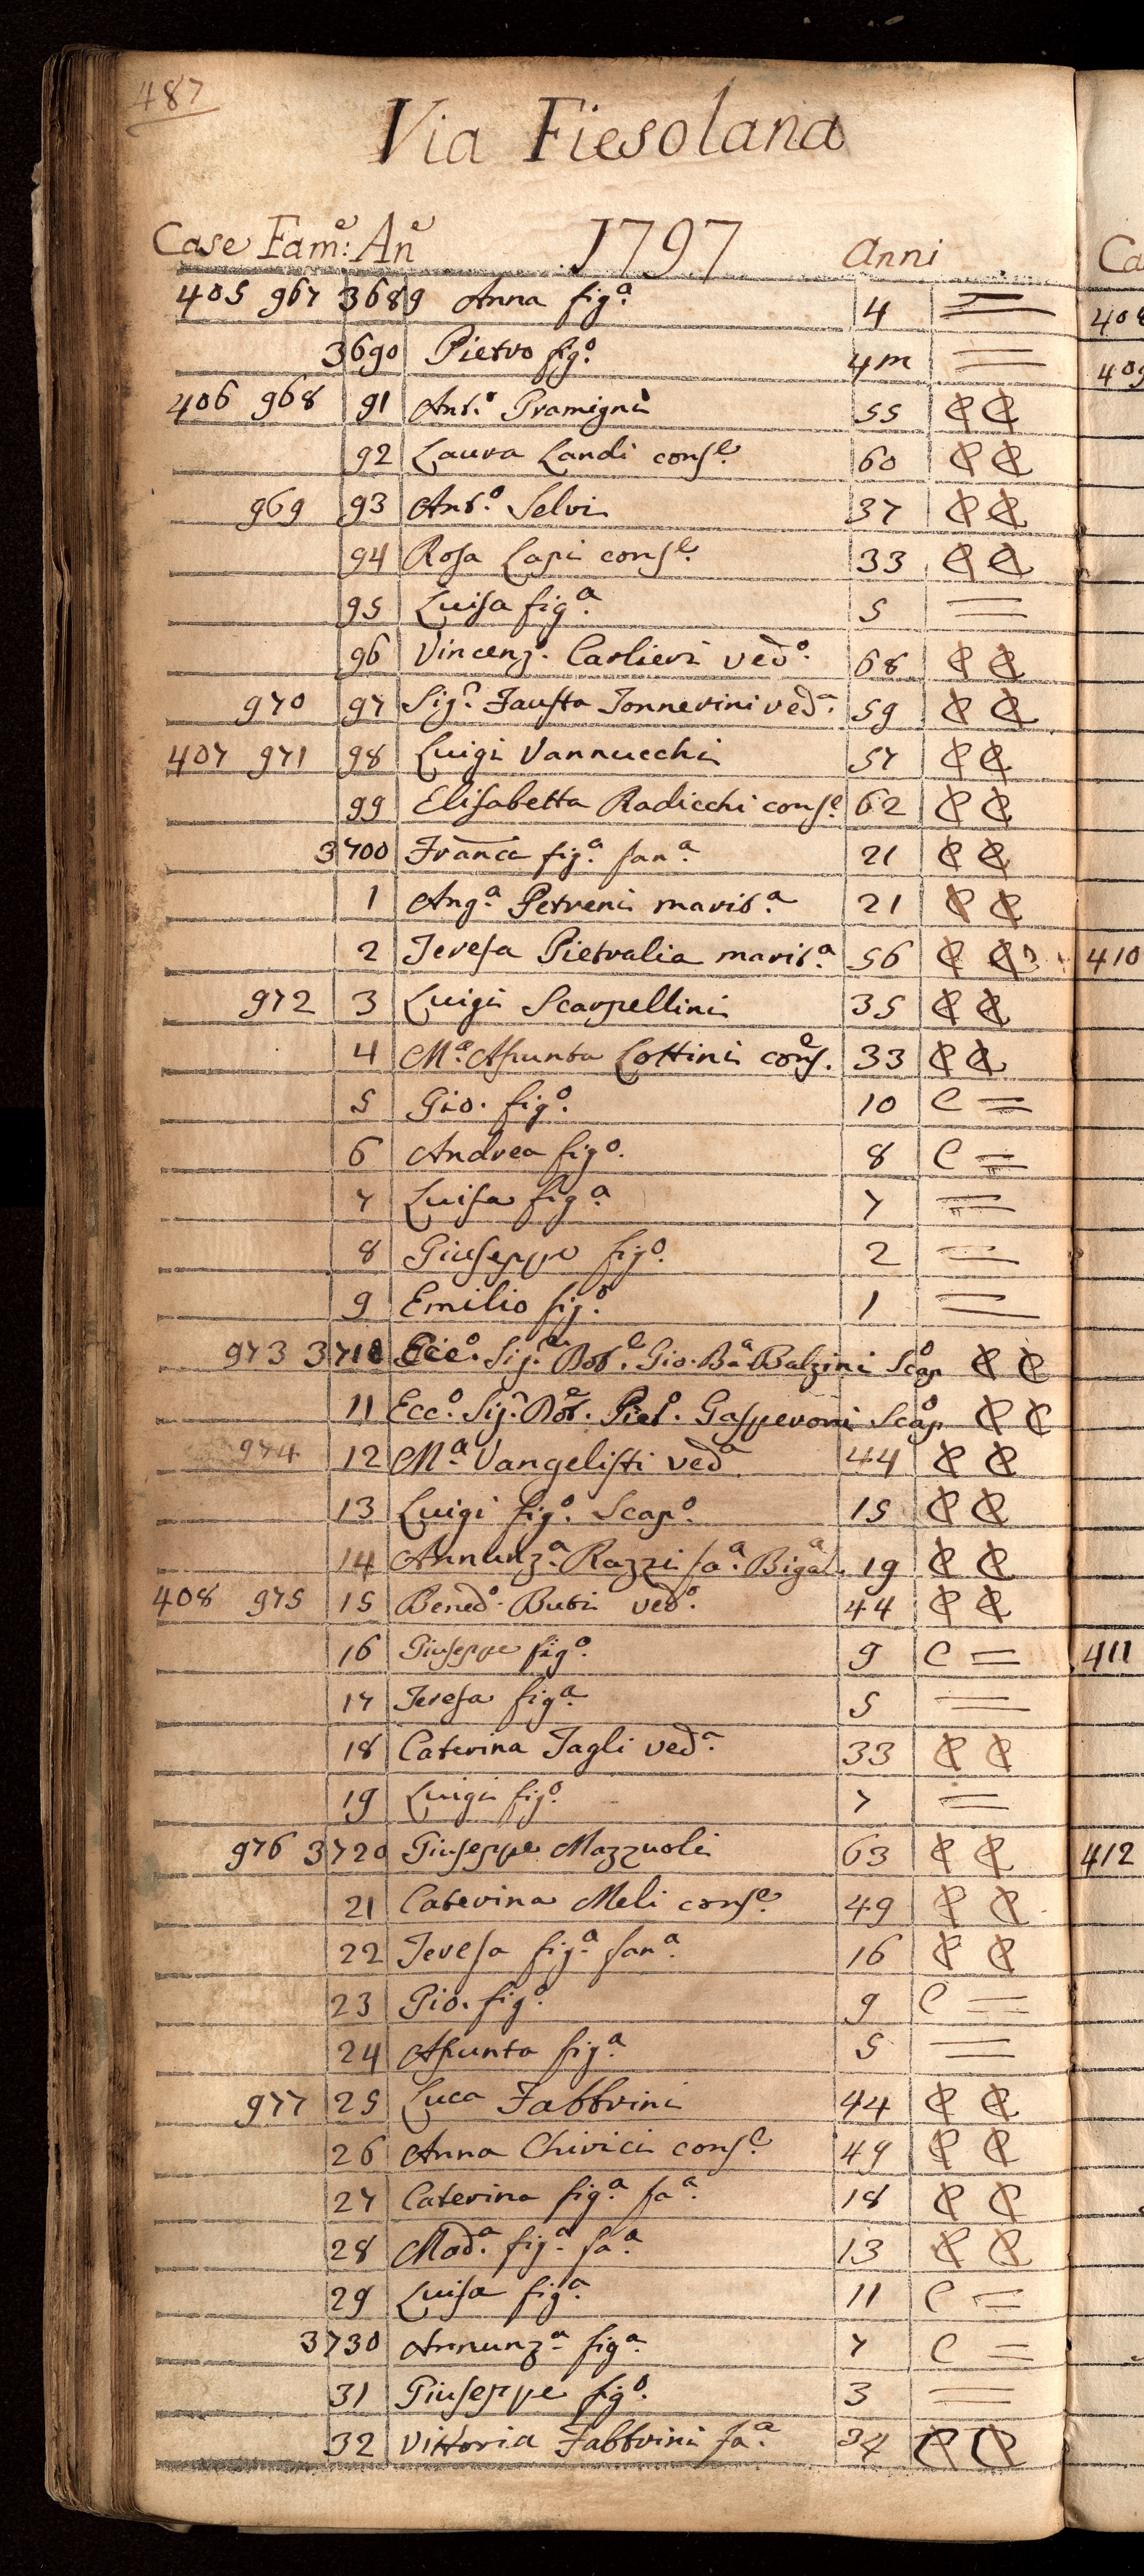 487
Via Fiesolana
Case Fam:e Ane 1797 Anni
405 967 3689 Anna figa. 4 =
3690 Pietro figo. 4m =
406 968 91 Anto. Gramigni 55 C C
92 Laura Landi conse. 60 C C
969 93 Anto. Selvi 37 C C
94 Rosa Lapi conse. 33 C C
95 Luisa figa. 5 =
96 Vincenzo. Carlieri vedo. 68 C C
970 97 Sigra. Fausta Tonnerini veda. 59 C C
407 971 98 Luigi Vannucchi 57 C C
99 Elisabetta Radicchi conse. 62 C C
3700 Franca figa. fana. 21 C C
1 Anga. Petreni marita. 21 C C
2 Teresa Pietralia marita. 56 C C
972 3 Luigi Scarpellini 35 C C
4 Ma. Assunta Lottini conse. 33 C C
5 Gio. figo. 10 C =
6 Andrea figo. 8 C =
7 Luisa figa 7 =
8 Giuseppe figo. 2 =
9 Emilio figo. 1 =
973 3710 Ecco. Sigre. Dote. Gio. Bâ Balzini Scapo C C
11 Ecco. Sigr. Dote. Pieto. Gasperoni Scapo C C
974 12 Ma. Vangelisti veda 44 C C
13 Luigi figo. Scapo. 15 C C
14 Annunza. Razzi faa. Bigal. 19 C C
408 975 15 Benedo. Buti vedo. 44 C C
16 Giuseppe figo. 9 C =
17 Teresa figa. 5 =
18 Caterina Tagli veda. 33 C C
19 Luigi figo. 7 =
976 3720 Giuseppe Mazzuoli 63 C C
21 Caterina Meli conse. 49 C C
22 Teresa figa. fana. 16 C C
23 Gio. figo. 9 C =
24 Assunta figa. 5 =
977 25 Luca Fabbrini 44 C C
26 Anna Chirici conse. 49 C C
27 Caterina figa. faa. 18 C C
28 Mada. figa. faa. 13 C C
29 Luisa figa. 11 C =
3730 Annunza. figa. 7 C =
31 Giuseppe figo. 3 =
32 Vittoria Fabbrini faa. 34 C C
Ca
408
409
410
411
412